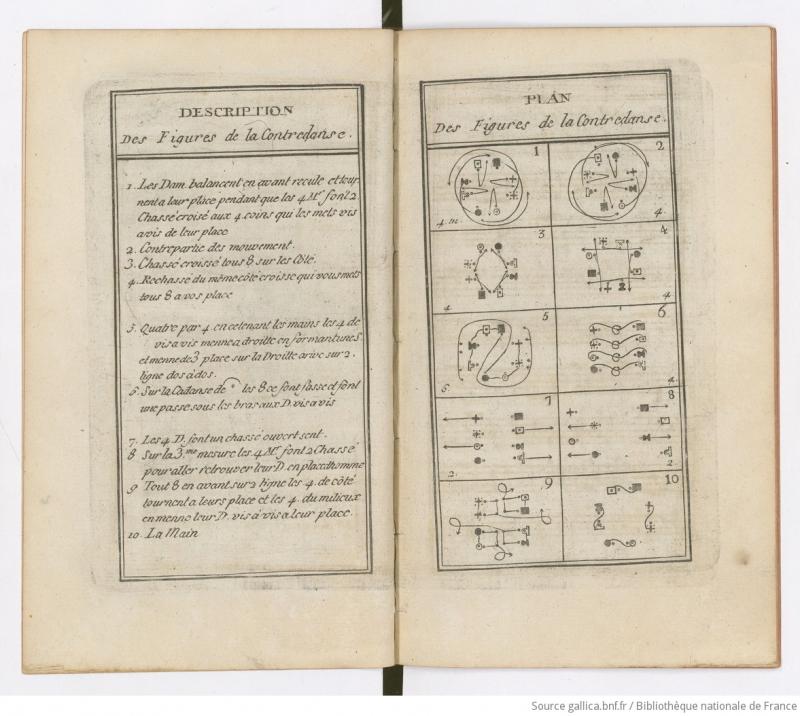 DESCRIPTION
Des Figures de la Contredanse.
1. Les Dam. balancent en avant recule et tour-
nent a leur place pendant que les 4 Mrs font 2
Chassé croisé aux 4 coins qui les mets vis
avis de leur place
2. Contrepartie des mouvement.
3. Chassé croissé tous 8 sur les Côté.
4. Rechassé du même côté croisse qui vous mets
tous 8 a vos place
5. Quatre par 4. en cetenant les mains les 4 de
vis a vis menne a droitte en formant une S
et menne de 3 place sur la Droitte arive sur 2.
ligne dos à dos.
6. Sur la Cadanse de les 8 ce font fasse et font
une passe sous les bras aux D. vis a vis
7. Les 4 D. font un chassé ouvert sent.
8 Sur la 3.me mesure les 4 Mrs font 2 Chassé
pour aller retrouver leur D. en place dhomme
9 Tout 8 en avant sur 2 ligne les 4. de côté
tournent a leurs place et les 4. du milieux
en menne leur D. vis à vis a leur place.
10. La Main
PLAN
Des Figures de la Contredanse.
1 2
4. m. 4.
3 4
4 4
5 6
5. 4.
7 8
2. 2
9 10
Source gallica.bnf.fr / Bibliothèque nationale de France